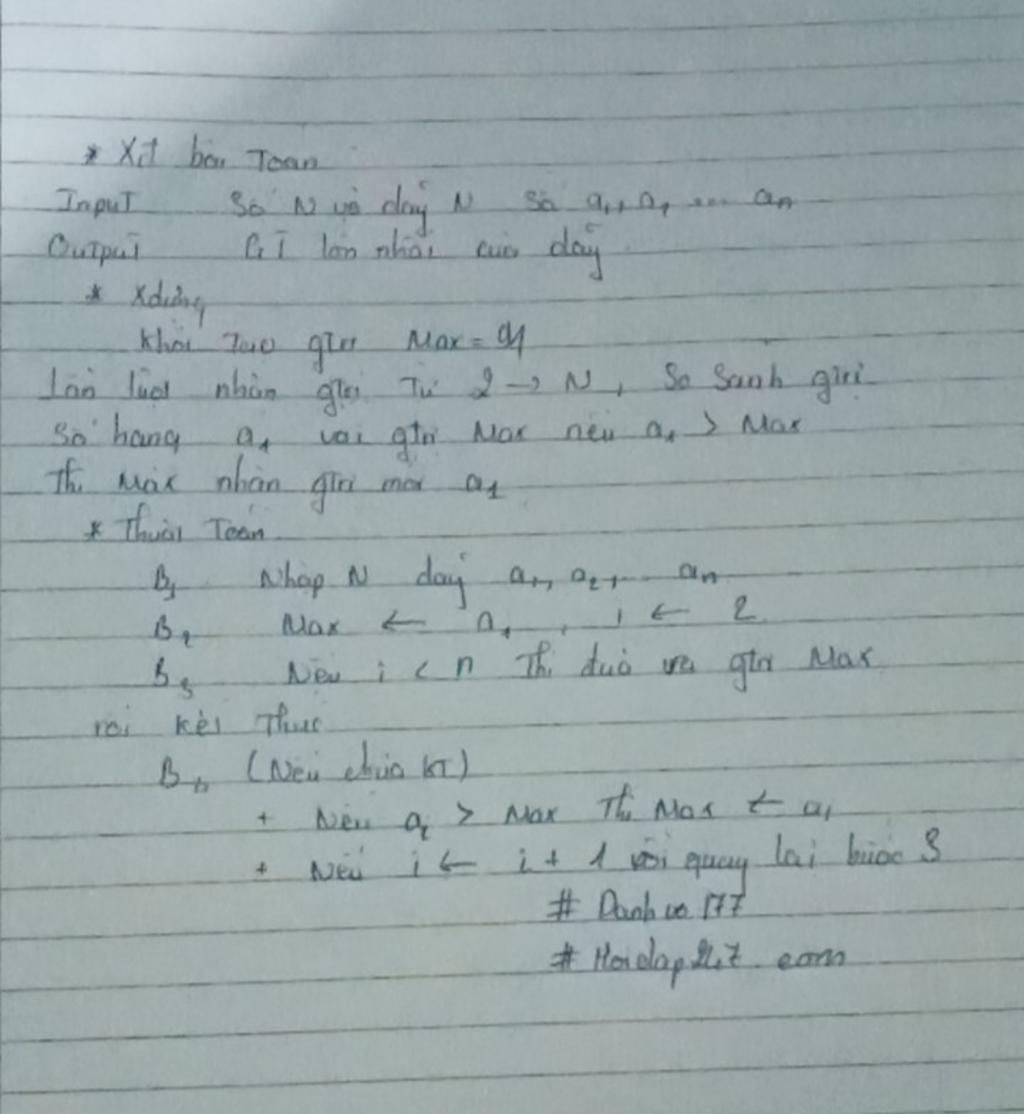 * Xét bài Toán
Input Số N và dãy N số a₁, a₁, ... aₙ
Output GT lớn nhất của dãy
* Xdựng
Khởi Tạo gtrị Max = a1
Lần lượt nhận gtrị Từ 2 → N, So Sánh gtrị
Số hạng a₁ với gtrị Max nếu a₁ > Max
Thì Max nhận gtrị mới a₁
* Thuật Toán
B₁ Nhập N dãy a₁, a₂, ... aₙ
B₂ Max ← a₁, i ← 2
B₃ Nếu i < n Thì đưa ra gtrị Max
rồi kết Thúc
(Nếu chưa kT)
+ Nếu aᵢ > Max Thì Max ← aᵢ
+ Nếu i ← i + 1 rồi quay lại bước 3
# 177
# Hoidap247. com